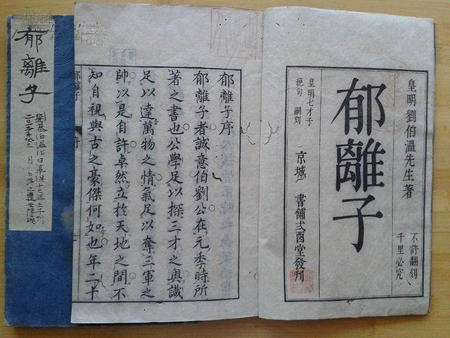 皇明劉伯溫先生著
郁離子
不許翻刻
千里必究
皇明七才子
絶句 嗣刻
京城 書鋪弍酉堂發刊
郁離子序
郁離子者誠意伯劉公在元季時所
著之書也公學足以探三才之奧識
足以達萬物之情氣足以奪三軍之
帥以是自許卓然立於天地之間不
知自視與古之豪傑何如也年二十
郁離子